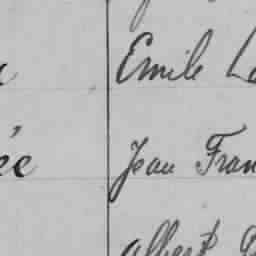 Emile
ée Jean Fran
Albert